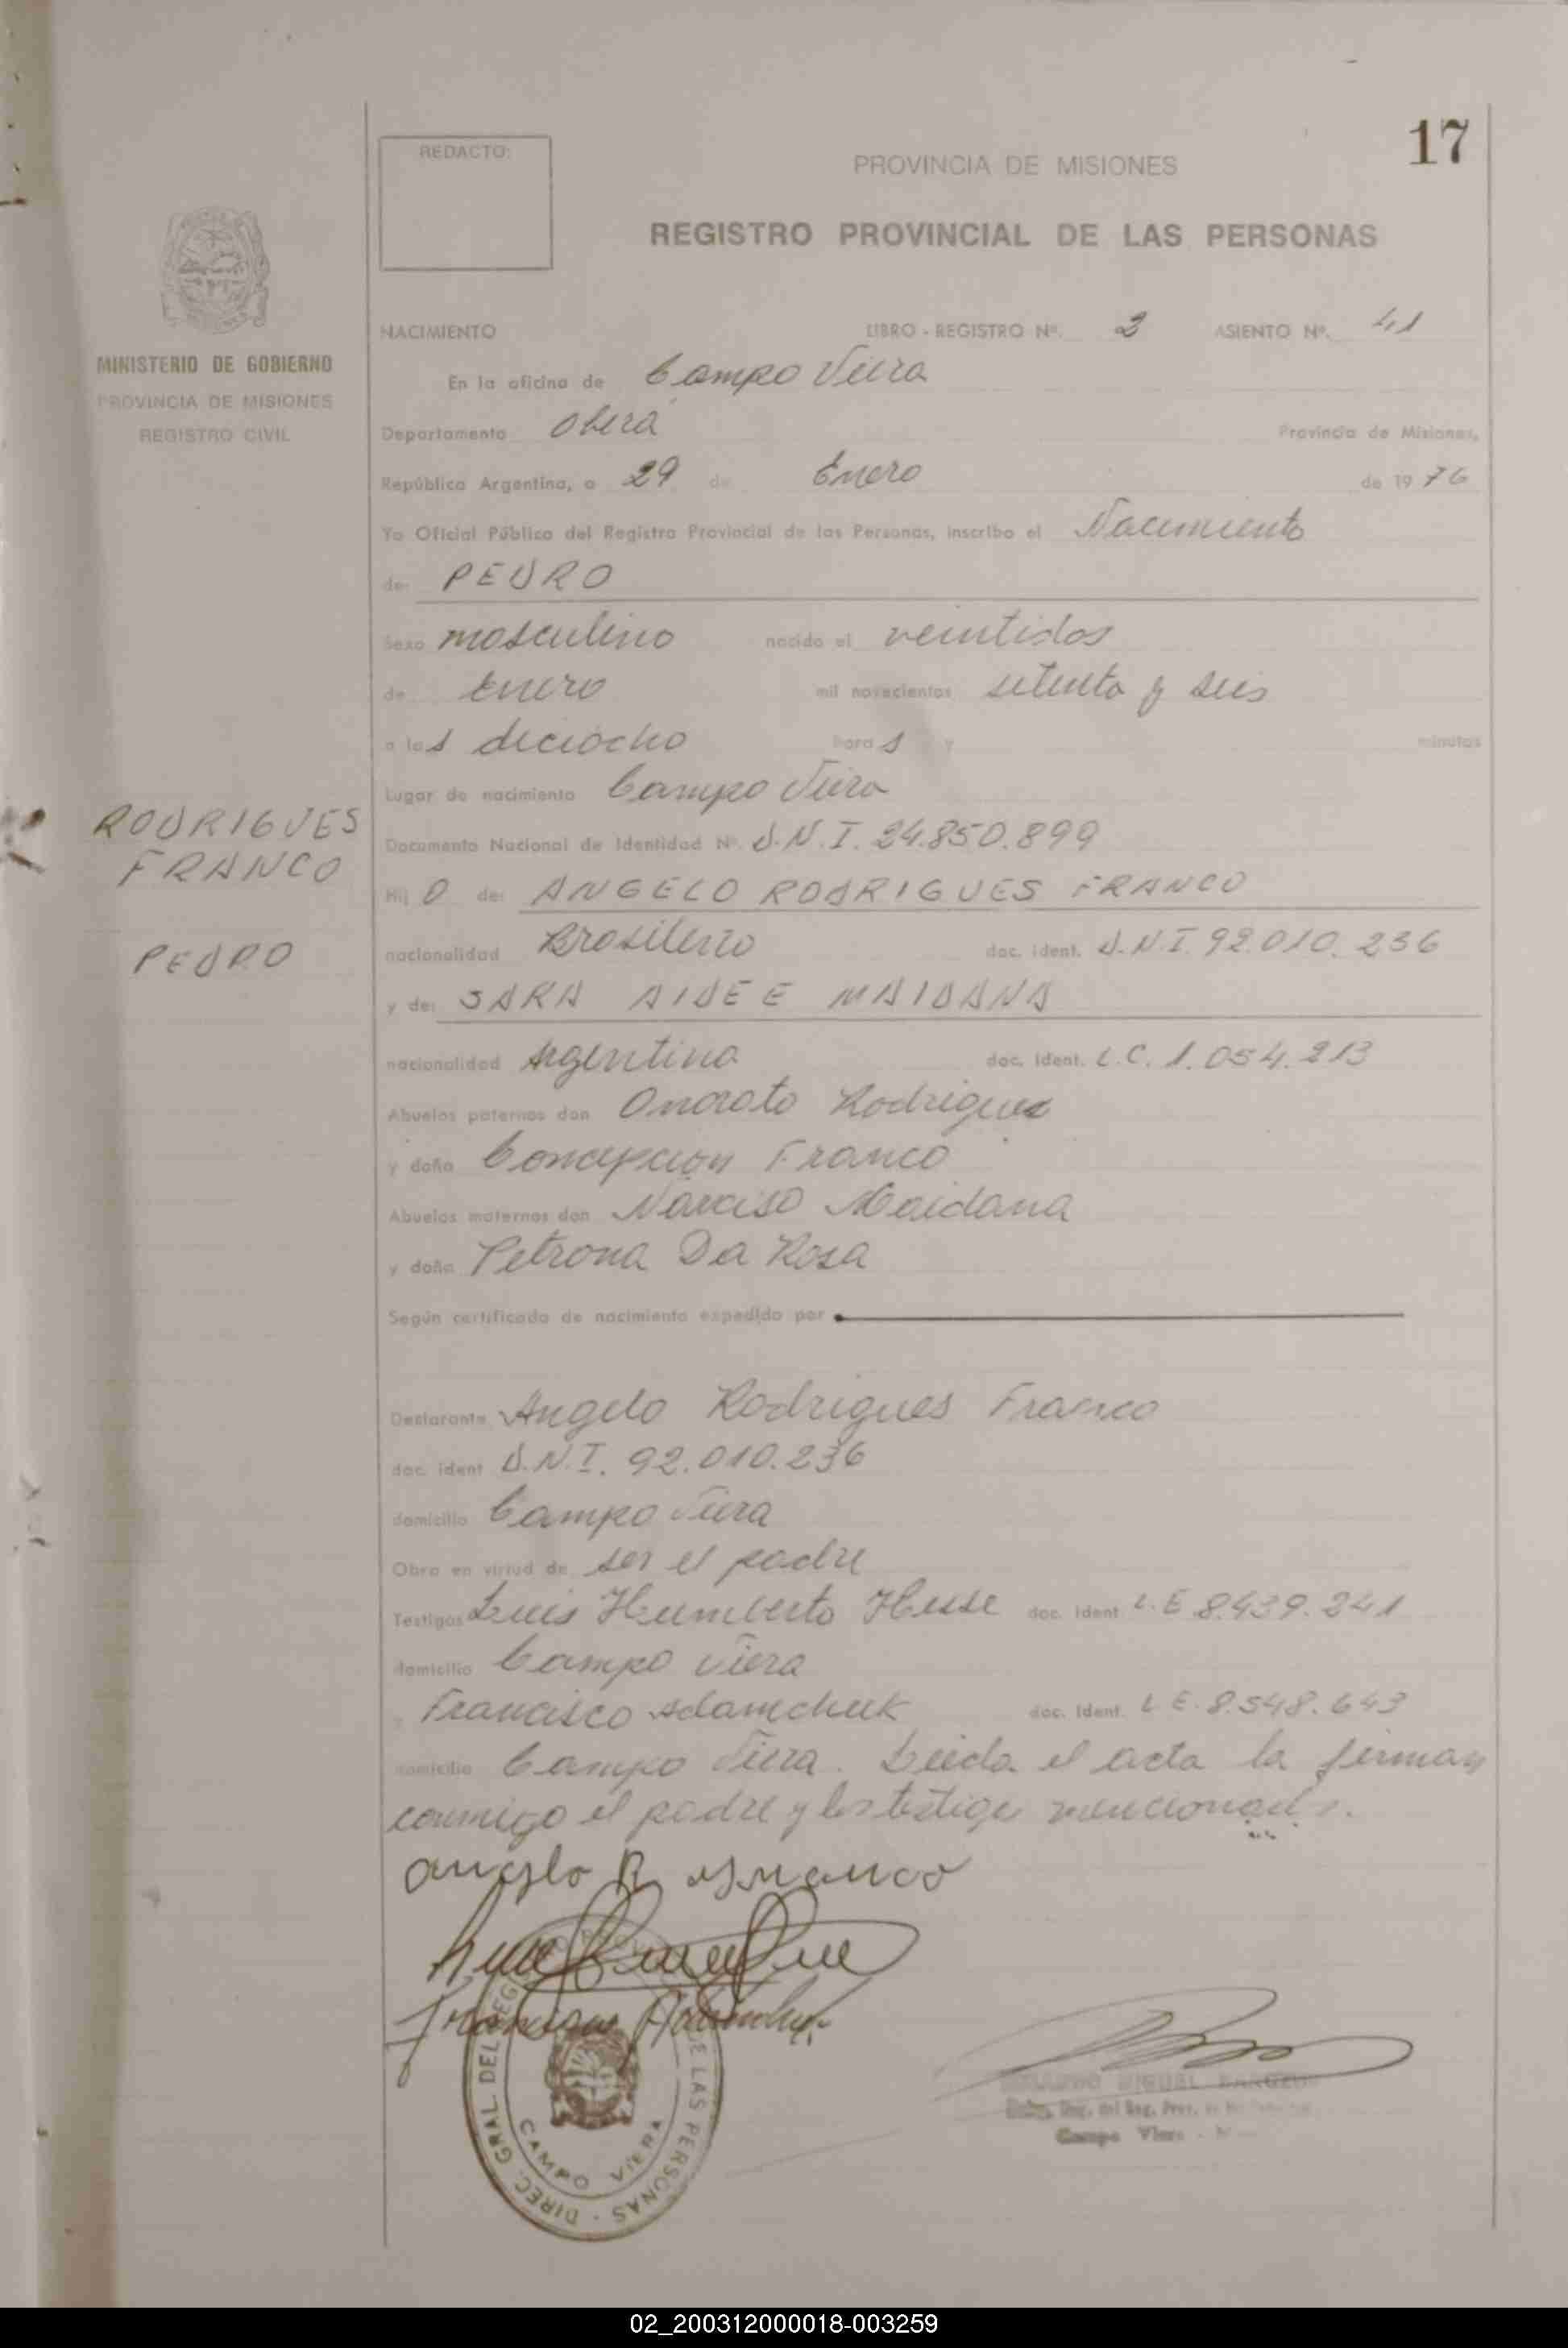 17
REDACTO:
PROVINCIA DE MISIONES
REGISTRO PROVINCIAL DE LAS PERSONAS
MINISTERIO DE GOBIERNO
PROVINCIA DE MISIONES
REGISTRO CIVIL
NACIMIENTO LIBRO - REGISTRO Nº. 2 ASIENTO Nº. 41
En la oficina de Campo Viera
Departamento Oberá Provincia de Misiones,
República Argentina, a 29 de Enero de 1976
Yo Oficial Público del Registro Provincial de las Personas, inscribo el Nacimiento
de: PEDRO
Sexo masculino nacido el veintidos
de Enero mil novecientos setenta y seis
a las dieciocho horas y minutos
Lugar de nacimiento Campo Viera
Documento Nacional de Identidad Nº. D.N.I. 24.850.899
RODRIGUES
FRANCO
PEDRO
Hijo de: ANGELO RODRIGUES FRANCO
nacionalidad Brasilero doc. ident. D.N.I. 92.010.236
y de: SARA AIDEE MAIDANA
nacionalidad Argentina doc. ident. L.C. 1.054.213
Abuelos paternos don Onorato Rodrigues
y doña Concepcion Franco
Abuelos maternos don Narciso Maidana
y doña Petrona Da Rosa
Según certificado de nacimiento expedido por
Declarante Angelo Rodrigues Franco
doc. ident D.N.I. 92.010.236
domicilio Campo Viera
Obra en virtud de ser el padre
Testigos Luis Humberto Huse doc. ident L.E 8.439.241
domicilio Campo Viera
y Francisco Adamchuk doc. ident. L.E. 8.548.643
domicilio Campo Viera. Leida el acta la firman
conmigo el padre y los testigos mencionados.
Angelo R Franco
Francisco Adamchuk
DIREC. GRAL. DEL REGISTRO DE LAS PERSONAS
CAMPO VIERA
MIGUEL
Campo Viera
02_200312000018-003259